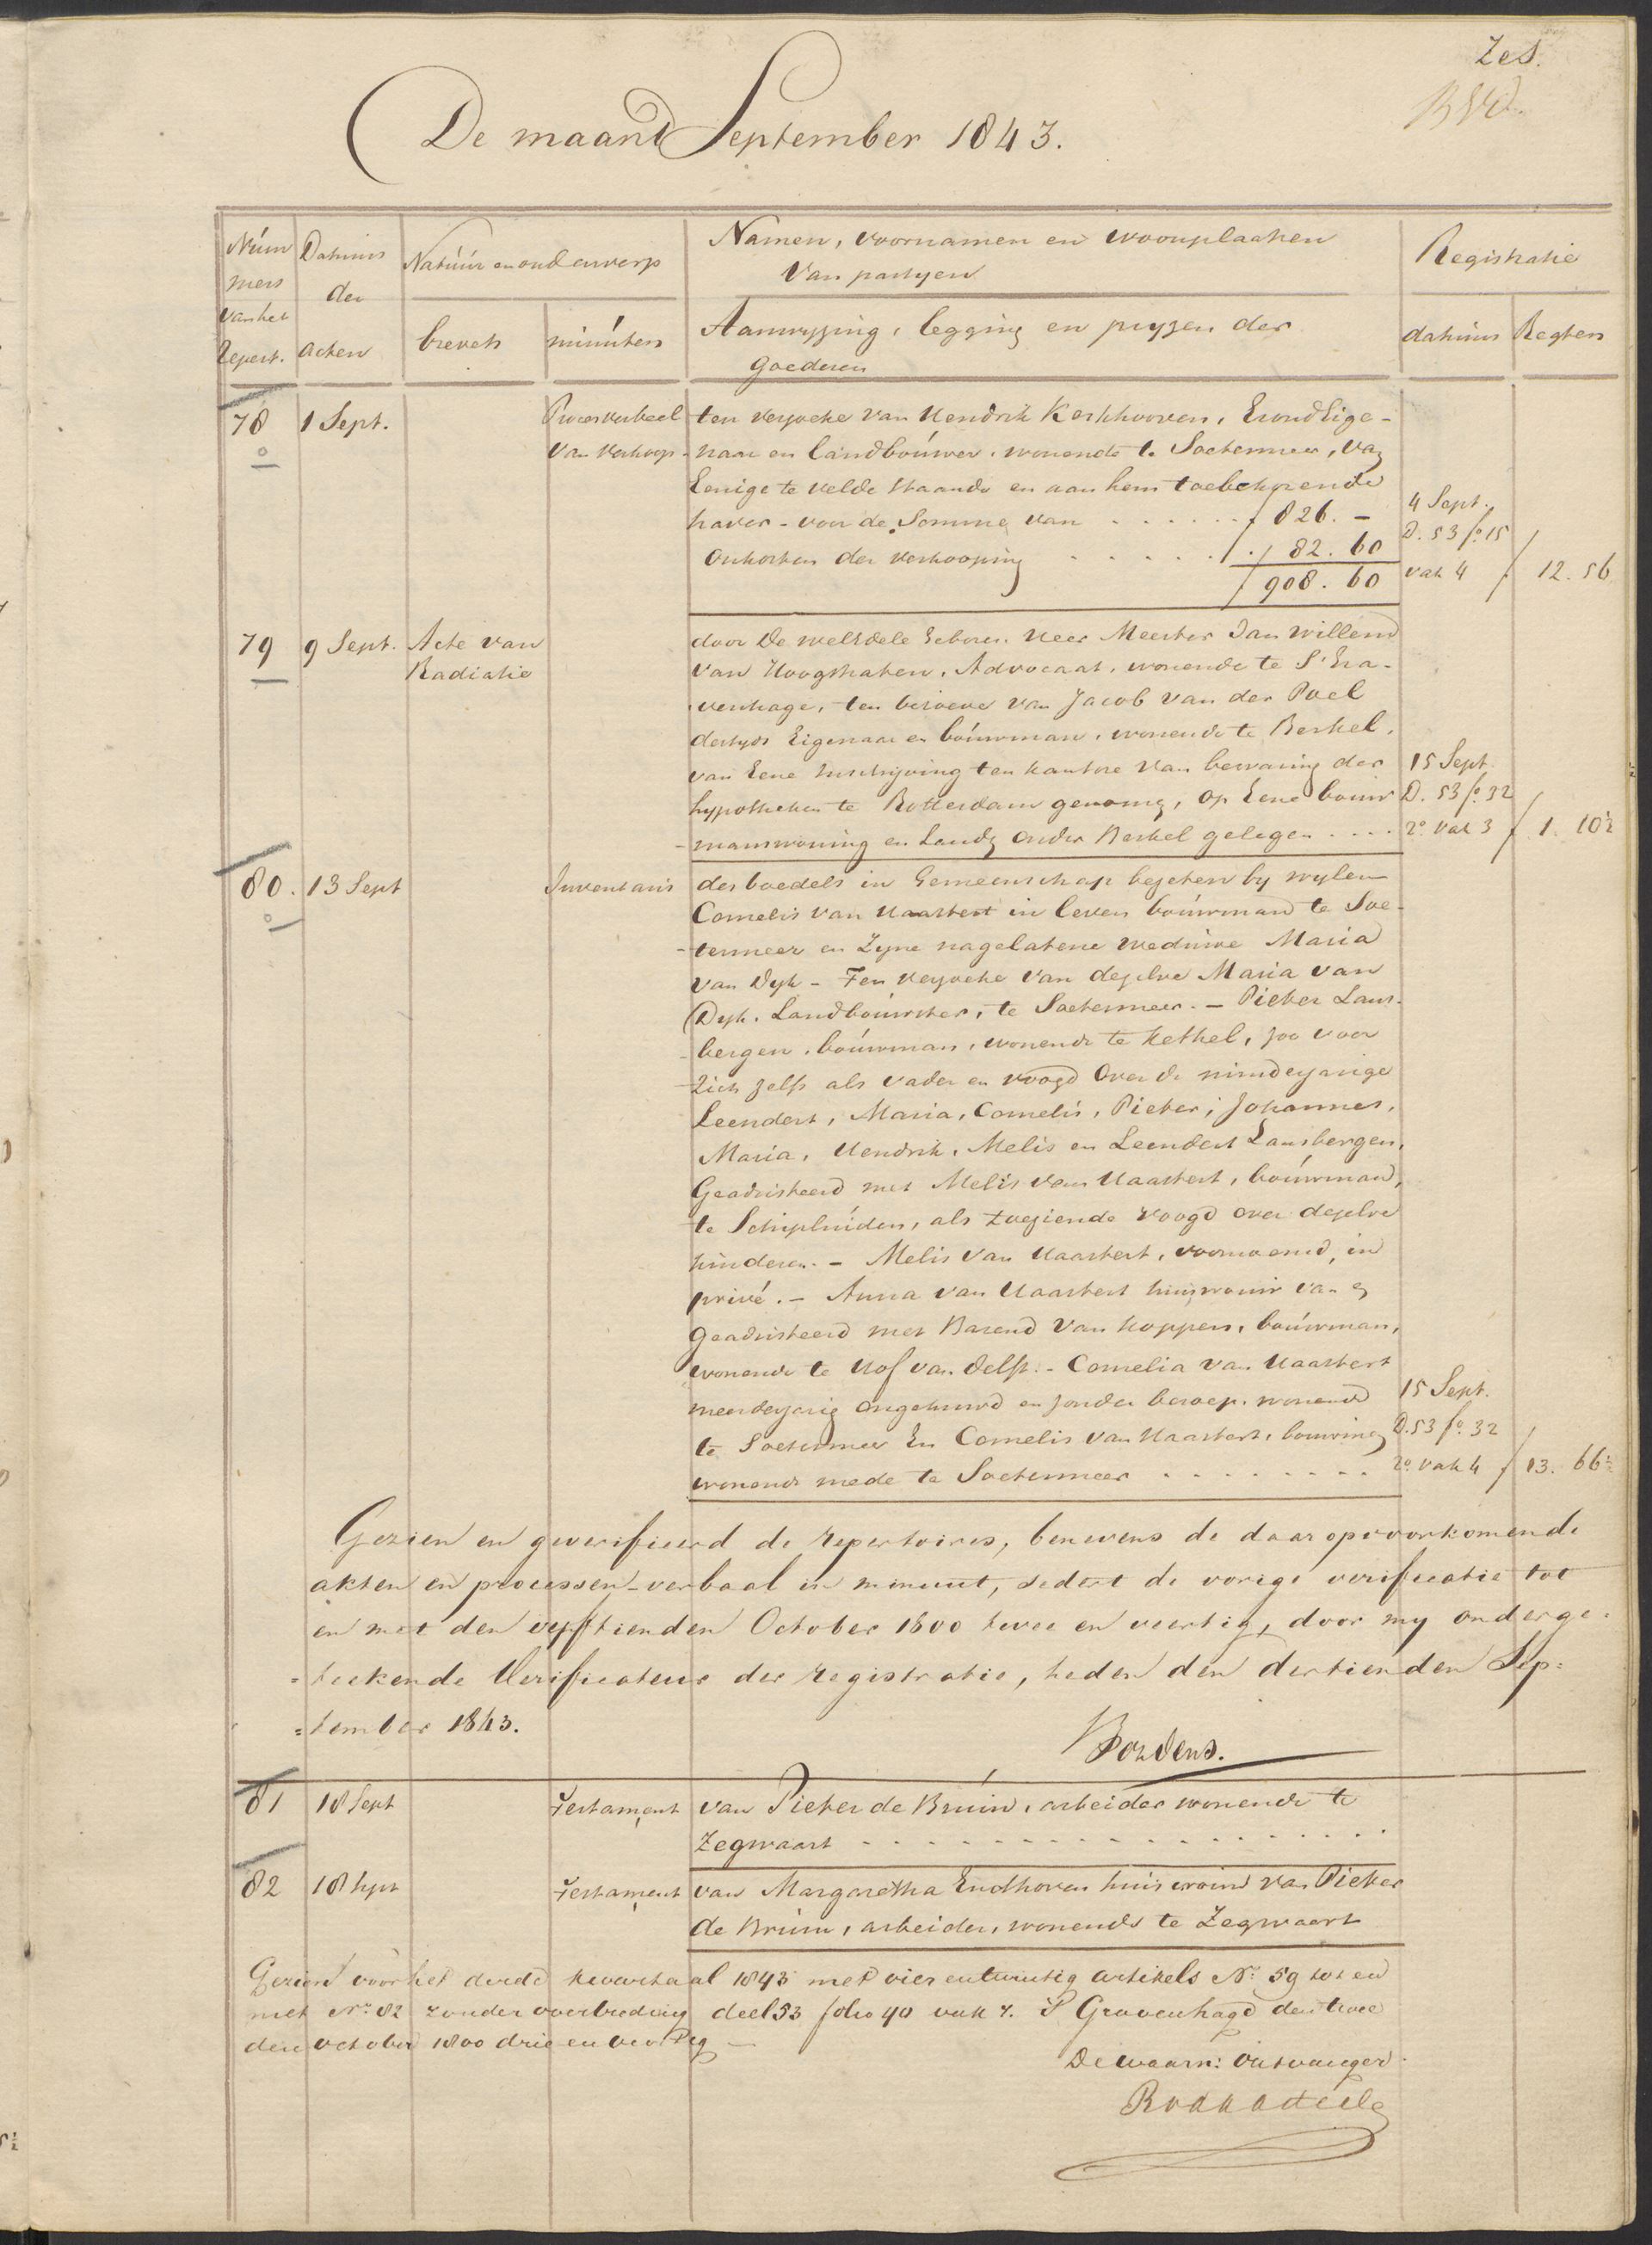 Zes.
De maand September 1843.
Núm
mers
van het
Repert.
Datums
der
acten
Natúúr en onderwerp
brevets
minúúten
Namen, voornamen en woonplaatsen
Van partyen
Aanwyzing, legging en pryzen der
goederen
Registratie
datums
Regten
78 1 Sept. Procesverbaal ten verzoeke van Hendrik Kerkhooven, Grondeige-
van verkoop naar en landboúwer, wonende te Soetermeer, van
Eenige te velde staande en aan hem toebehorende
haver - voor de Somme van . . . . . . ƒ 826. - 4 Sept.
D. 53 fo. 15
Onkosten der verkooping . . . . . . ƒ 82. 60
ƒ 908. 60 vak 4 ƒ 12. 56
79 9 Sept. Acte van door De welEdele Geboren Heer Meester Jan Willem
Radiatie van Hoogstraten, Advocaat, wonende te S'Gra-
venhage, ten behoeve van Jacob van der Poel
destyds Eigenaar en boúwman, wonende te Berkel,
van Eene Inschryving ten kantore van bewaring der 15 Sept.
hypotheken te Rotterdam genomen, op Eene bouw D. 53 fo. 32
-manswoning en Landen onder Berkel gelegen . . . . 2o. vak 3 ƒ 1. 10½
80. 13 Sept Inventaris des boedels in Gemeenschap bezeten by wylen
Cornelis van Haastert in leven boúwman te Soe-
-termeer en Zyne nagelatene weduwe Maria
van Dyk - Ten verzoeke van dezelve Maria van
Dyk, Landboúwster, te Soetermeer. - Pieter Lans-
-bergen, boúwman, wonende te Kethel, zoo voor
Zich zelfs als vader en voogd over de minderjarige
Leendert, Maria, Cornelis, Pieter, Johannes,
Maria, Hendrik, Melis en Leendert Lansbergen,
Geadsisteerd met Melis van Haastert, boúwman,
te Schipluiden, als toeziende voogd over dezelve
kinderen. - Melis van Haastert, voornoemd, in
privé. - Anna van Haastert huisvrouw van en
geadsisteerd met Barend van Koppen, boúwman,
wonende te Hof van Delft. - Cornelia van Haastert
meerderjarig ongehuwd en zonder beroep, wonende 15 Sept.
te Soetermeer En Cornelis van Haastert, bouwman D. 53 fo. 32
wonende mede te Soetermeer . . . . . . . . 2o. vak 4 ƒ 13. 66½
Gezien en geverifieerd de repertoires, benevens de daarop voorkomende
akten en processen-verbaal in minuut, sedert de vorige verificatie tot
en met den vyftienden October 1800 twee en veertig, door my onderge-
=teekende Verificateur der registratie, heden den dertienden Sep=
=tember 1843.
Bordens.
81 18 Sept Testament van Pieter de Brúin, arbeider wonende te
Zegwaart . . . . . . . . . . . . . . . .
82 18 Sept Testament van Margaretha Endhoven huisvrouw van Pieter
de Brúin, arbeider, wonende te Zegwaart
Gezien voor het derde kwartaal 1843 met vier entwintig artikels No. 59 tot en
met No. 82 zonder overtreding deel 53 folio 40 vak 7. 's Gravenhage den twee
den october 1800 drie en veertig
De waarn: Ontvanger